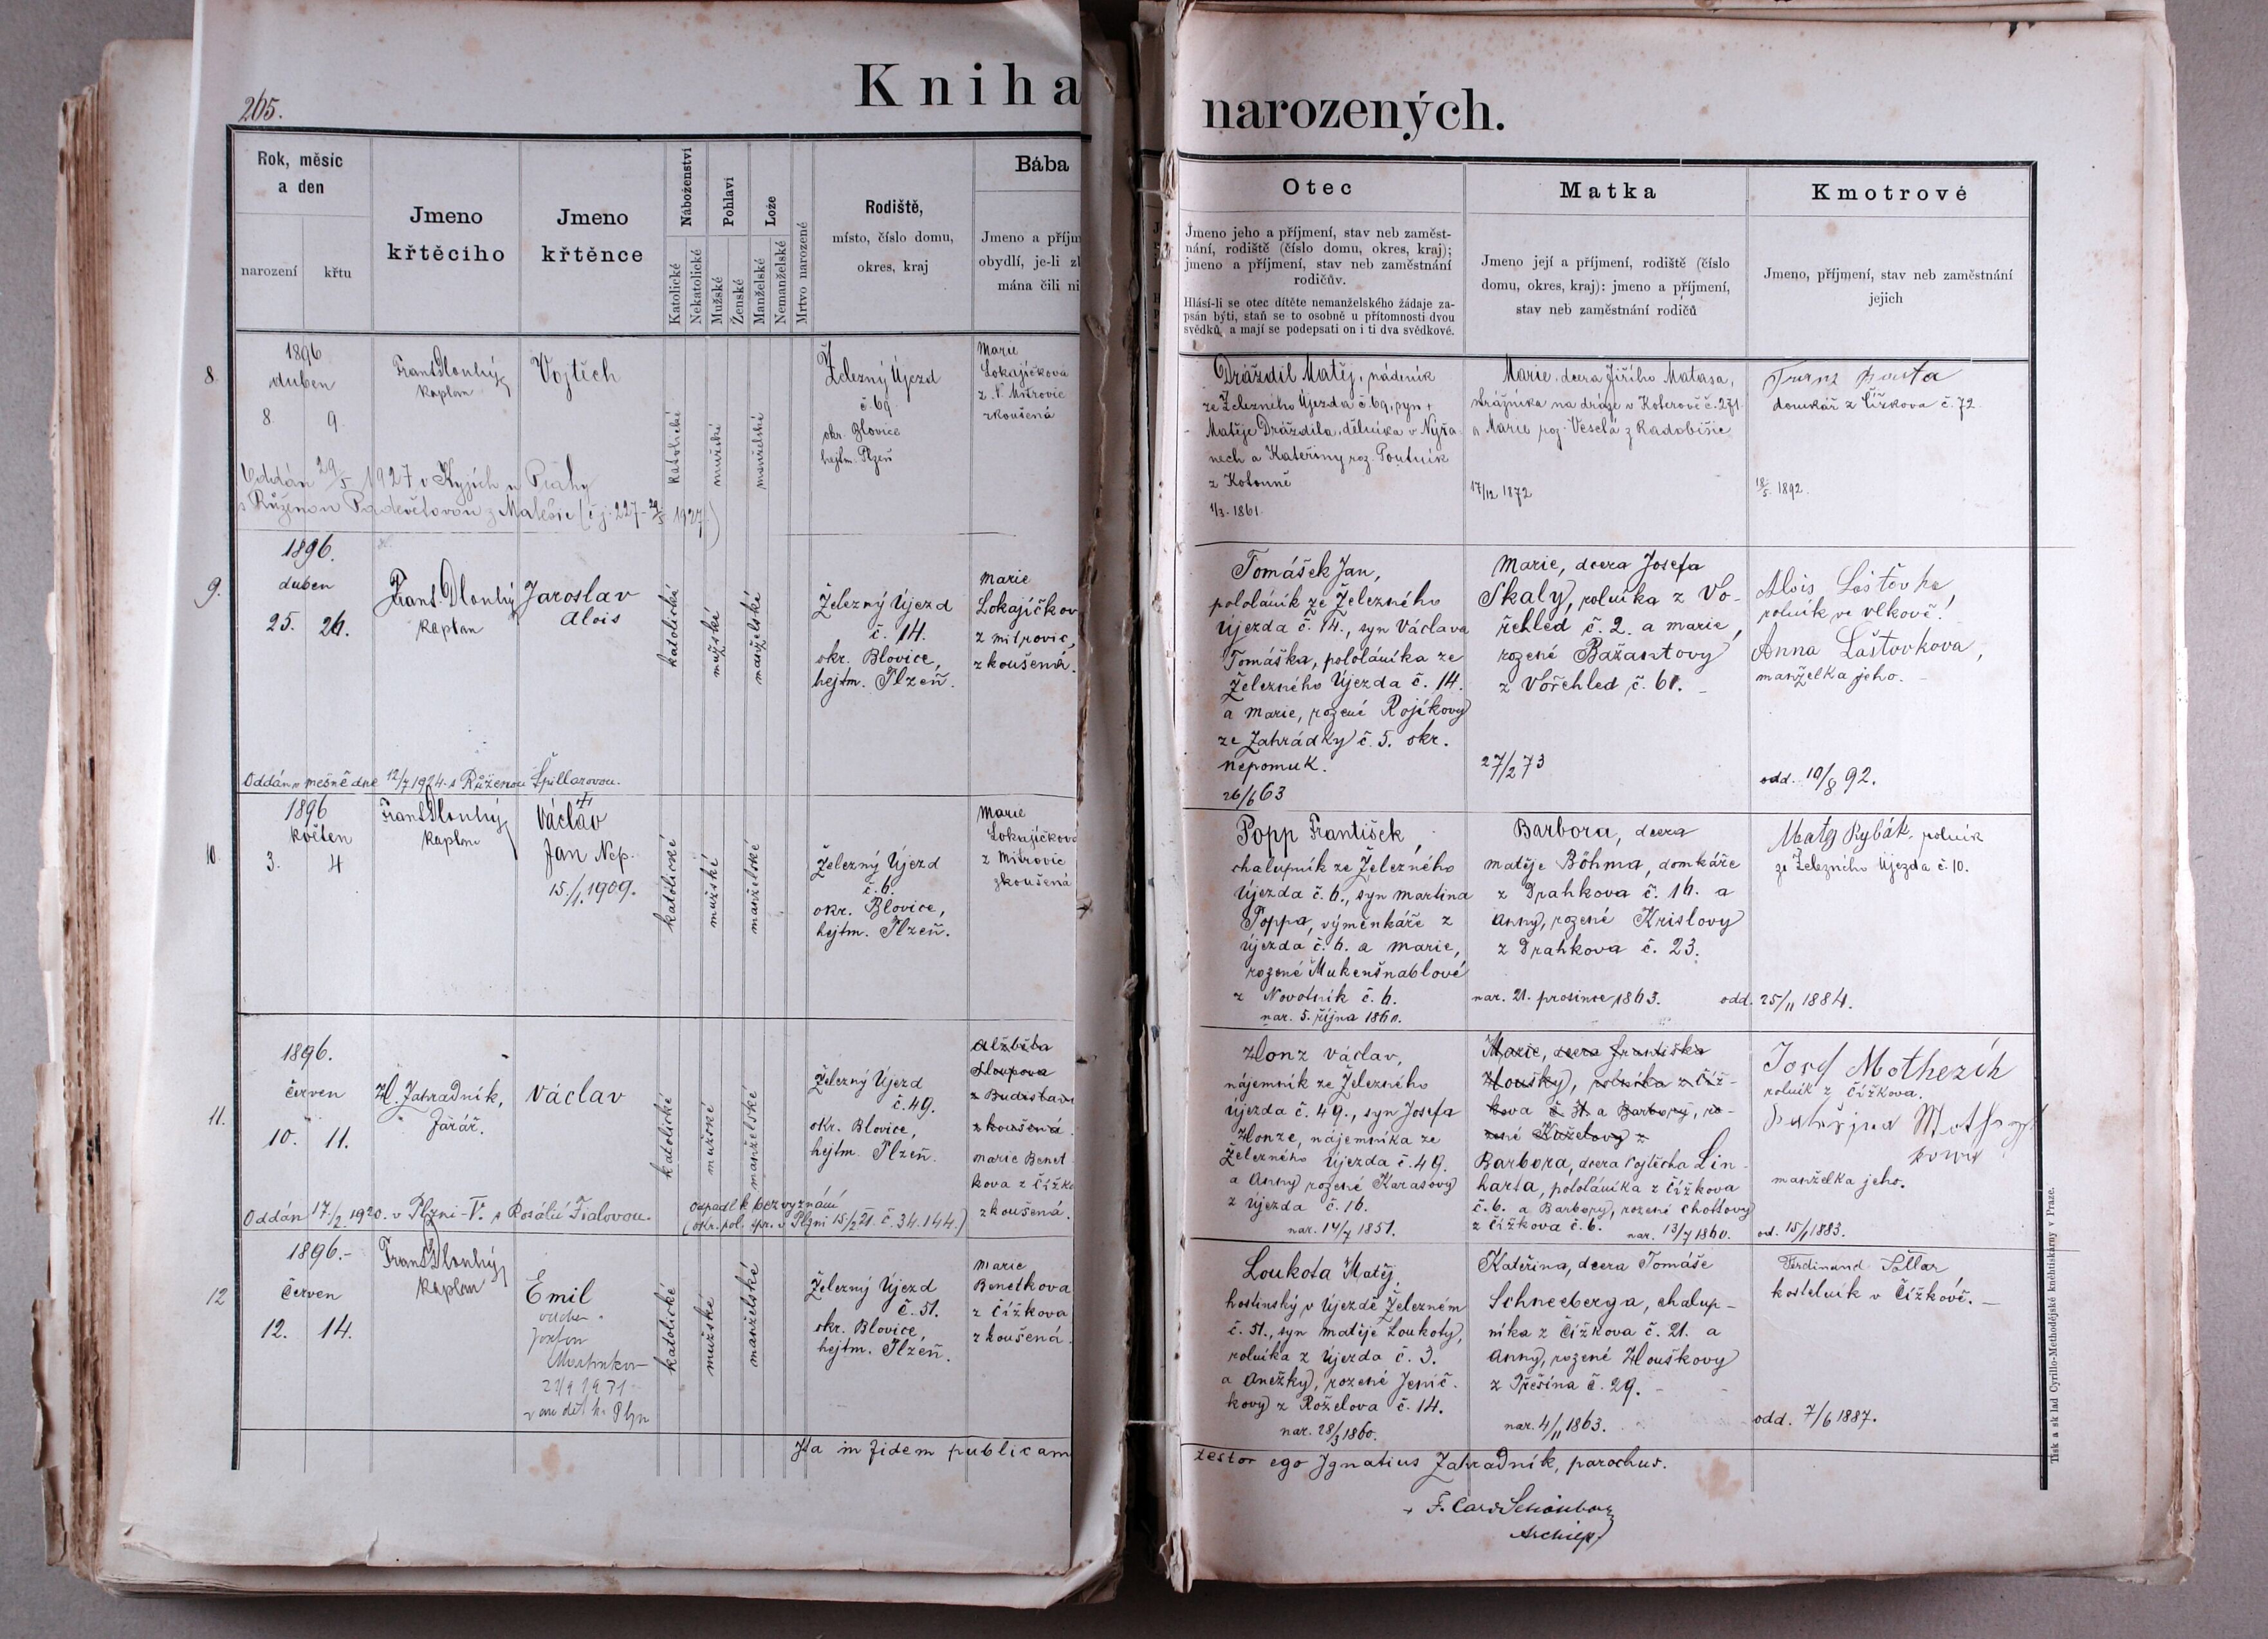 265.
Kniha
narozených.
Rok, měsíc
a den
narození
křtu
Jmeno
křtěcího
Jmeno
křtěnce
Náboženství
Katolické
Nekatolické
Pohlaví
Mužské
Ženské
Lože
Manželské
Nemanželské
Mrtvo narozené
Rodiště,
místo, číslo domu,
okres, kraj
Bába
Jmeno a příjm
obydlí, je-li zk
mána čili ni
Otec
Jmeno jeho a příjmení, stav neb zaměst-
nání, rodiště (číslo domu, okres, kraj);
jmeno a příjmení, stav neb zaměstnání
rodičův.
Hlásí-li se otec dítěte nemanželského žádaje za-
psán býti, staň se to osobně u přítomnosti dvou
svědků, a mají se podepsati on i ti dva svědkové.
Matka
Jmeno její a příjmení, rodiště (číslo
domu, okres, kraj): jmeno a příjmení,
stav neb zaměstnání rodičů
Kmotrové
Jmeno, příjmení, stav neb zaměstnání
jejich
8.
1896
duben
8 9.
Frant. Dlouhý
kaplan
Vojtěch
katolické
mužské
manželské
Železný Újezd
č. 69
okr. Blovice
hejtm. Plzeň
Marie
Lokajíčková
z N. Mitrovic
zkoušená
Oddán 29/5 1927 v Kyjích u Prahy
s Růženou Padevětovou z Malešic (čj. 227 - 29/5 1927)
Dráždil Matěj, nádeník
ze Železného Újezda č. 69, syn +
Matěje Dráždila, dělníka v Nýřa
nech a Kateřiny roz. Poutník
z Kotouně
1/3. 1861.
Marie, dcera Jiřího Matasa,
strážníka na dráze v Koterově č. 271
a Marie roz. Veselá z Radobišic
17/12 1872
Franz
domkář z Čížkova č. 72
18/5. 1892.
9.
1896.
duben
25. 26.
Frant. Dlouhý
kaplan
Jaroslav
Alois
katolické
mužské
manželské
Železný Újezd
č. 14.
okr. Blovice,
hejtm. Plzeň.
Marie
Lokajíčkov
z Mitrovic,
zkoušená.
Oddán v mešně dne 12/7 1924 s Růženou Špillarovou.
Tomášek Jan,
pololáník ze Železného
Újezda č. 14., syn Václava
Tomáška, pololáníka ze
Železného Újezda č. 14.
a Marie, rozené Rojíkovy
ze Zahrádky č. 5. okr.
Nepomuk.
26/6 63
Marie, dcera Josefa
Skaly, rolníka z Vo-
řehled č. 2. a Marie,
rozené Bažantovy
z Vořehled č. 61.
27/2 73
Alois Laštovka,
rolník ve Vlkově!
Anna Laštovkova,
manželka jeho.
odd. 10/8 92.
10.
1896
květen
3. 4
Frant. Dlouhý
kaplan
Václav
Jan Nep.
15./1. 1909.
katolické
mužské
manželské
Železný Újezd
č. 6.
okr. Blovice,
hejtm. Plzeň.
Marie
Lokajíčková
z Mitrovic
zkoušená
Popp František,
chalupník ze Železného
Újezda č. 6., syn Martina
Poppa, výměnkáře z
Újezda č. 6. a Marie,
rozené Mukenšnablové
z Novotník č. 6.
nar. 5. října 1860.
Barbora, dcera
Matěje Böhma, domkáře
z Drahkova č. 16. a
Anny, rozené Krislovy
z Drahkova č. 23.
nar. 21. prosince 1863.
Matěj Rybák, rolník
ze Železného Újezda č. 10.
odd. 25/11 1884.
11.
1896.
červen
10. 11.
Ig. Zahradník,
farář.
Václav
katolické
mužské
manželské
Železný Újezd
č. 49.
okr. Blovice,
hejtm. Plzeň.
Alžběta
Sloupova
z Budislavi
zkoušená.
Marie Benet
kova z Čížko
zkoušená.
Oddán 17./2. 1920. v Plzni-V. s Rosálií Fialovou.
odpadl k bezvyznání
(okr. pol. spr. v Plzni 15/2 21. č. 34.144.)
Honz Václav,
nájemník ze Železného
Újezda č. 49., syn Josefa
Honze, nájemníka ze
Železného Újezda č. 49.
a Anny, rozené Karasovy
z Újezda č. 16.
nar. 14/7 1851.
Marie, dcera Františka
Houšky, rolníka z Číž-
kova č. 31 a Barbory, ro-
zené Kuželovy z
Barbora, dcera Vojtěcha Lin
harta, pololáníka z Čížkova
č. 6. a Barbory, rozené Chottovy
z Čížkova č. 6. nar. 13/7 1860.
Josef Mothezich
rolník z Čížkova.
manželka jeho.
od. 15/1 1883.
12
1896.-
červen
12. 14.
Frant. Dlouhý
kaplan
Emil
katolické
mužské
manželské
Železný Újezd
č. 51.
okr. Blovice,
hejtm. Plzeň.
Marie
Benetkova
z Čížkova
zkoušená.
Loukota Matěj,
hostinský v Újezdě Železném
č. 51., syn Matěje Loukoty,
rolníka z Újezda č. 3.
a Anežky, rozené Jenič-
kovy z Roželova č. 14.
nar. 28/3 1860.
Kateřina, dcera Tomáše
Schneeberga, chalup-
níka z Čížkova č. 21. a
Anny, rozené Houškovy
z Přešína č. 29.
nar. 4/11 1863.
Ferdinand Šollar
kostelník v Čížkově.
odd. 7/6 1887.
Ita in fidem publicam
testor ego Ignatius Zahradník, parochus.
+ F. Card. Schönborn
Archiep.
Tisk a sklad Cyrillo-Methodějské knihtiskárny v Praze.